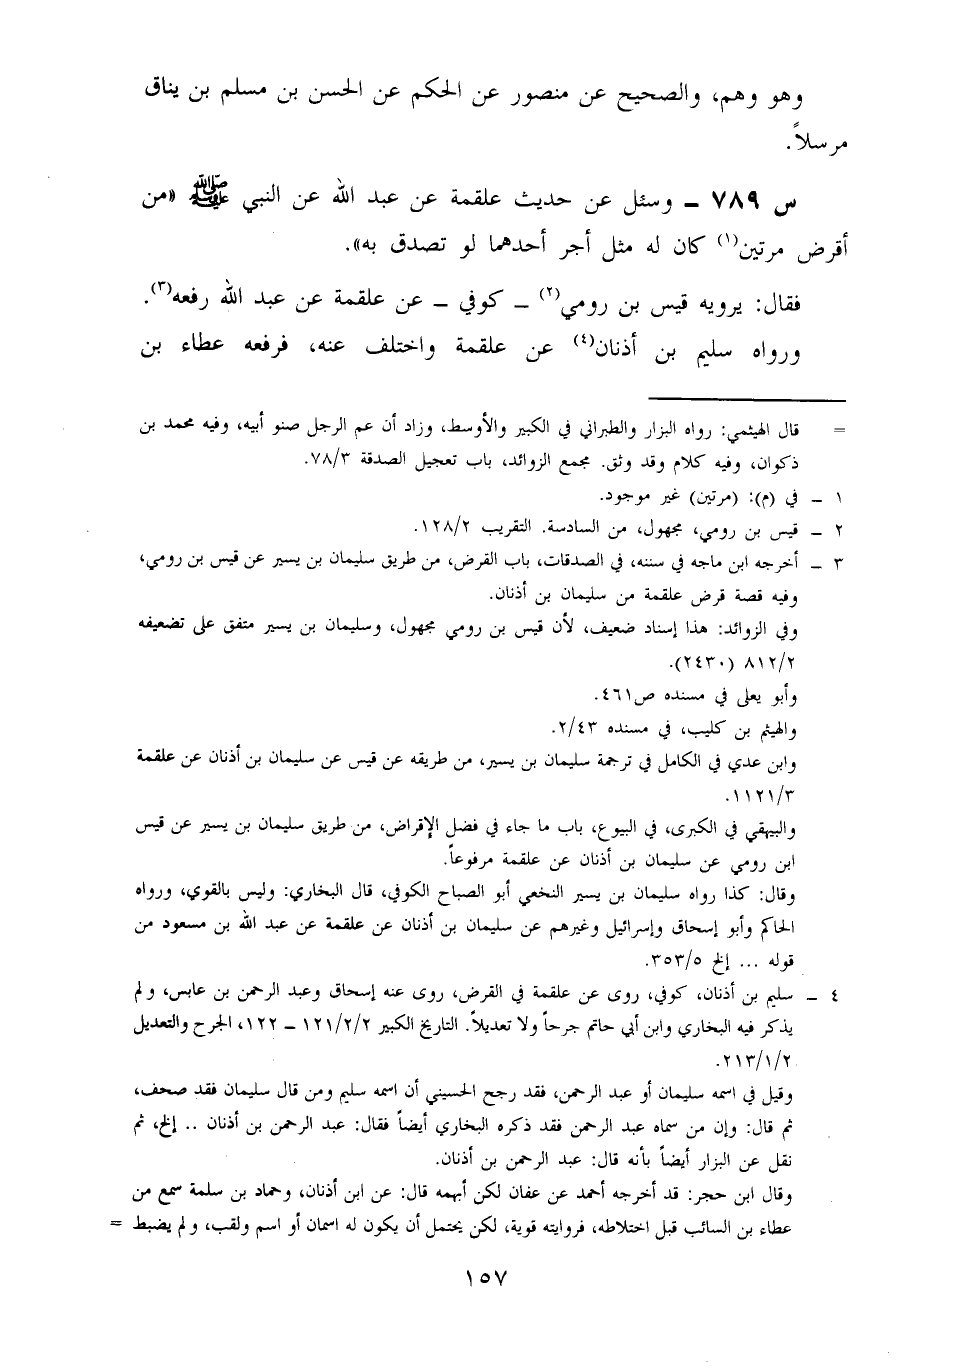 وهو وهم، والصحيح عن منصور عن الحكم عن الحسن بن مسلم بن يناق
مرسلاً.
س ٧٨٩ ـ وسئل عن حديث علقمة عن عبد الله عن النبي ﷺ «من
أقرض مرتين(١) كان له مثل أجر أحدهما لو تصدق به».
فقال: يرويه قيس بن رومي(٢) ـ كوفي ـ عن علقمة عن عبد الله رفعه(٣).
ورواه سليم بن أذنان(٤) عن علقمة واختلف عنه، فرفعه عطاء بن
= قال الهيثمي: رواه البزار والطبراني في الكبير والأوسط، وزاد أن عم الرجل صنو أبيه، وفيه محمد بن
ذكوان، وفيه كلام وقد وثق. مجمع الزوائد، باب تعجيل الصدقة ٧٨/٣.
١ ـ في (م): (مرتين) غير موجود.
٢ ـ قيس بن رومي، مجهول، من السادسة. التقريب ١٢٨/٢.
٣ ـ أخرجه ابن ماجه في سننه، في الصدقات، باب القرض، من طريق سليمان بن يسير عن قيس بن رومي،
وفيه قصة قرض علقمة من سليمان بن أذنان.
وفي الزوائد: هذا إسناد ضعيف، لأن قيس بن رومي مجهول، وسليمان بن يسير متفق على تضعيفه
٨١٢/٢ (٢٤٣٠).
وأبو يعلى في مسنده ص٤٦١.
والهيثم بن كليب، في مسنده ٢/٤٣.
وابن عدي في الكامل في ترجمة سليمان بن يسير، من طريقه عن قيس عن سليمان بن أذنان عن علقمة
١١٢١/٣.
والبيهقي في الكبرى، في البيوع، باب ما جاء في فضل الإقراض، من طريق سليمان بن يسير عن قيس
ابن رومي عن سليمان بن أذنان عن علقمة مرفوعاً.
وقال: كذا رواه سليمان بن يسير النخعي أبو الصباح الكوفي، قال البخاري: وليس بالقوي، ورواه
الحاكم وأبو إسحاق وإسرائيل وغيرهم عن سليمان بن أذنان عن علقمة عن عبد الله بن مسعود من
قوله ... إلخ ٣٥٣/٥.
٤ ـ سليم بن أذنان، كوفي، روى عن علقمة في القرض، روى عنه إسحاق وعبد الرحمن بن عابس، ولم
يذكر فيه البخاري وابن أبي حاتم جرحاً ولا تعديلاً. التاريخ الكبير ١٢١/٢/٢ ـ ١٢٢، الجرح والتعديل
٢١٣/١/٢.
وقيل في اسمه سليمان أو عبد الرحمن، فقد رجح الحسيني أن اسمه سليم ومن قال سليمان فقد صحف،
ثم قال: وإن من سماه عبد الرحمن فقد ذكره البخاري أيضاً فقال: عبد الرحمن بن أذنان .. إلخ، ثم
نقل عن البزار أيضاً بأنه قال: عبد الرحمن بن أذنان.
وقال ابن حجر: قد أخرجه أحمد عن عفان لكن أبهمه قال: عن ابن أذنان، وحماد بن سلمة سمع من
عطاء بن السائب قبل اختلاطه، فروايته قوية، لكن يحتمل أن يكون له اسمان أو اسم ولقب، ولم يضبط =
١٥٧